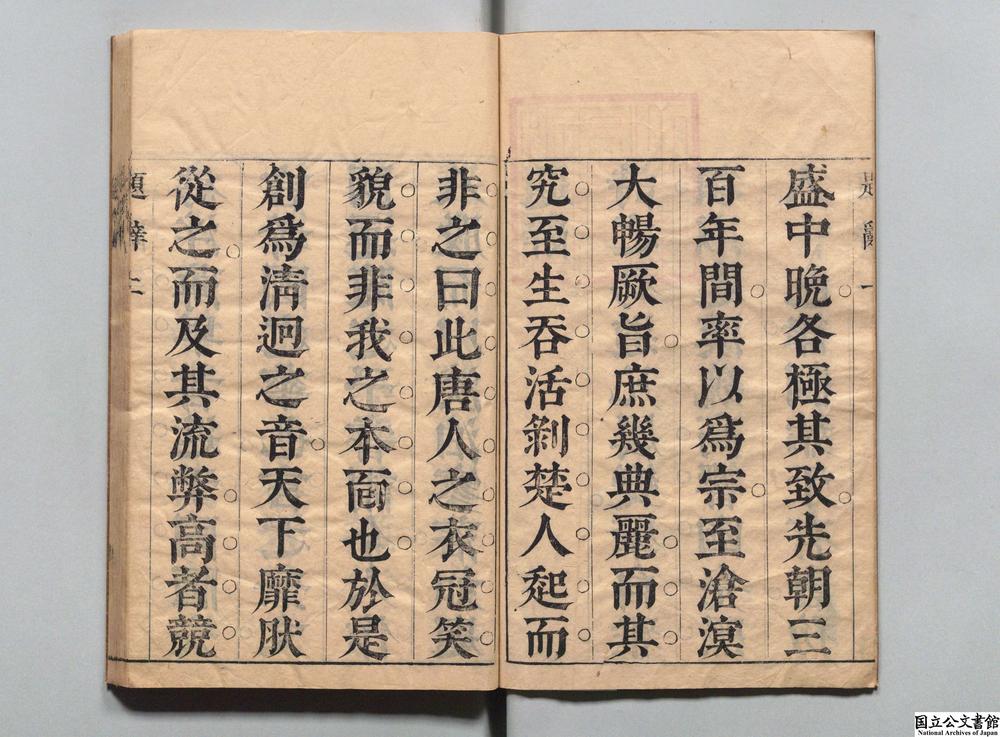 題辭 一
盛中晚各極其致先朝三
百年間率以爲宗至滄溟
大暢厥旨庶幾典麗而其
究至生吞活剝楚人起而
非之曰此唐人之衣冠笑
貌而非我之本面也於是
創爲淸迥之音天下靡肰
從之而及其流弊高者競
題辭 二
国立公文書館
National Archives of Japan